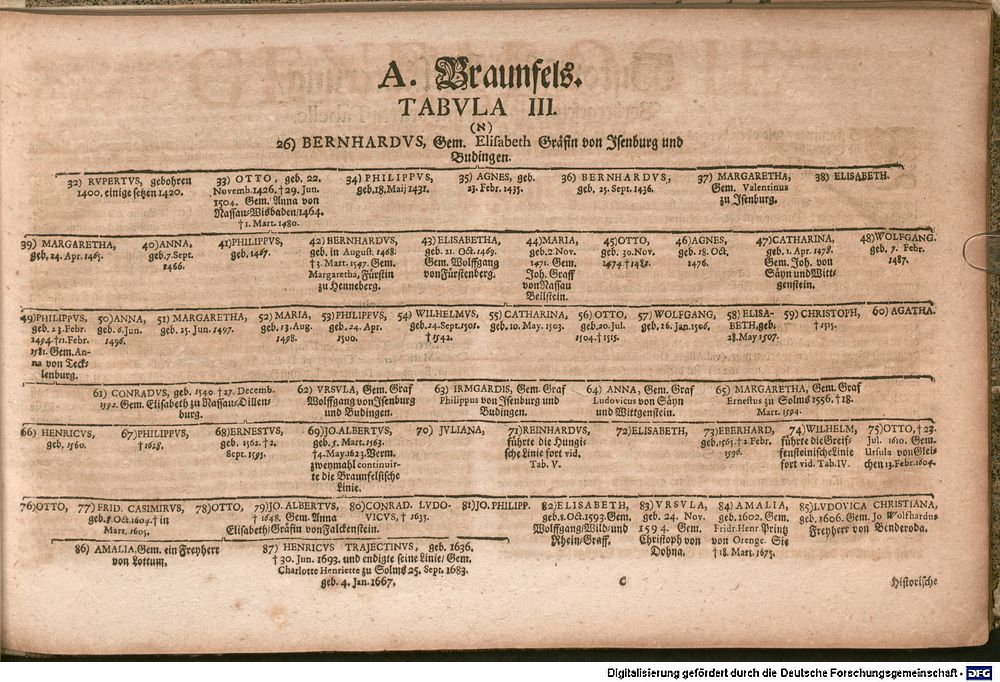 A. Braunfels.
TABVLA III.
(א)
26) BERNHARDVS, Gem. Elisabeth Gräfin von Isenburg und
Budingen.
32) RVPERTVS, gebohren
1400, einige setzen 1420.
33) OTTO, geb. 22.
Novemb. 1426. † 29. Jun.
1504. Gem. Anna von
Nassau-Wisbaden/1464.
† 1. Mart. 1480.
34) PHILIPPVS,
geb. 18. Maij 1431.
35) AGNES, geb.
23. Febr. 1435.
36) BERNHARDVS,
geb. 25. Sept. 1436.
37) MARGARETHA,
Gem. Valentinus
zu Isenburg.
38) ELISABETH.
39) MARGARETHA,
geb. 24. Apr. 1465.
40) ANNA,
geb. 7. Sept.
1466.
41) PHILIPPVS,
geb. 1467.
42) BERNHARDVS,
geb. in August. 1468.
† 3. Mart. 1547. Gem.
Margaretha, Fürstin
zu Henneberg.
43) ELISABETHA,
geb. 21. Oct. 1469.
Gem. Wolffgang
von Fürstenberg.
44) MARIA,
geb. 2. Nov.
1471. Gem.
Joh. Graff
von Nassau
Beilstein.
45) OTTO,
geb. 30. Nov.
1474 † 1481.
46) AGNES,
geb. 18. Oct.
1476.
47) CATHARINA,
geb. 1. Apr. 1478.
Gem. Joh. von
Säyn und Witt-
genstein.
48) WOLFGANG.
geb. 7. Febr.
1487.
49) PHILIPPVS,
geb. 23. Febr.
1494 † 11. Febr.
1581. Gem. An-
na von Teck-
lenburg.
50) ANNA,
geb. 6. Jun.
1496.
51) MARGARETHA,
geb. 25. Jun. 1497.
52) MARIA,
geb. 13. Aug.
1498.
53) PHILIPPVS,
geb. 24. Apr.
1500.
54) WILHELMVS,
geb. 24. Sept. 1501.
† 1542.
55) CATHARINA,
geb. 10. May. 1503.
56) OTTO,
geb. 20. Jul.
1504. † 1515.
57) WOLFGANG,
geb. 16. Jan. 1506.
58) ELISA-
BETH, geb.
28. May 1507.
59) CHRISTOPH,
† 1515.
60) AGATHA.
61) CONRADVS, geb. 1540. † 27. Decemb.
1592. Gem. Elisabeth zu Nassau-Dillen-
burg.
62) VRSVLA, Gem. Graf
Wolffgang von Isenburg
und Budingen.
63) IRMGARDIS, Gem. Graf
Philippus von Isenburg und
Budingen.
64) ANNA, Gem. Graf
Ludovicus von Säyn
und Wittgenstein.
65) MARGARETHA, Gem. Graf
Ernestus zu Solms 1556. † 18.
Mart. 1594.
66) HENRICVS,
geb. 1560.
67) PHILIPPVS,
† 1628.
68) ERNESTVS,
geb. 1562. † 2,
Sept. 1595.
69) JO. ALBERTVS,
geb. 5. Mart. 1563.
† 4. May. 1623. Verm.
zweymahl continuir-
te die Braunfelsische
Linie.
70) JVLIANA,
71) REINHARDVS,
führte die Hungi-
sche Linie fort vid.
Tab. V.
72) ELISABETH,
73) EBERHARD,
geb. 1565. † 2 Febr.
1596.
74) WILHELM,
führte die Greif-
fensteinische Linie
fort vid. Tab. IV.
75) OTTO, † 23.
Jul. 1610. Gem.
Ursula von Glei-
chen 13. Febr. 1604.
76) OTTO,
77) FRID. CASIMIRVS,
geb. 8. Oct. 1604. † in
Mart. 1605.
78) OTTO,
79) JO. ALBERTVS,
† 1648. Gem. Anna
Elisabeth/Gräfin von Falckenstein.
80) CONRAD. LVDO-
VICVS, † 1635.
81) JO. PHILIPP.
82) ELISABETH,
geb. 8. Oct. 1593. Gem.
Wolffgang/Wild- und
Rhein/Graff.
83) VRSVLA,
geb. 24. Nov.
1594. Gem.
Christoph von
Dohna.
84) AMALIA,
geb. 1602. Gem.
Fridr. Henr. Printz
von Orenge. Sie
† 18. Mart. 1675.
85) LVDOVICA CHRISTIANA,
geb. 1606. Gem. Jo Wolfhardus
Freyherr von Benderoda.
86) AMALIA, Gem. ein Freyherr
von Lottum,
87) HENRICVS TRAJECTINVS, geb. 1636,
† 30. Jun. 1693. und endigte seine Linie/Gem.
Charlotte Henriette zu Solms 25. Sept. 1683.
geb. 4. Jan. 1667,
C
Historische
Digitalisierung gefördert durch die Deutsche Forschungsgemeinschaft - DFG